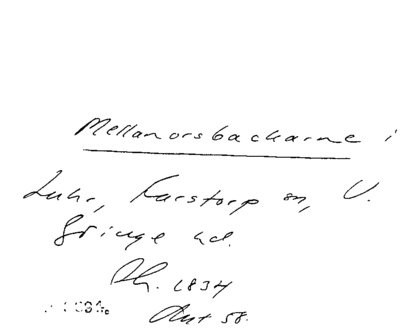 Mellanorsbackarne i
Luhr, Farstorp sn, V.
Göinge hd.
Dh. 1834
Ant 58.